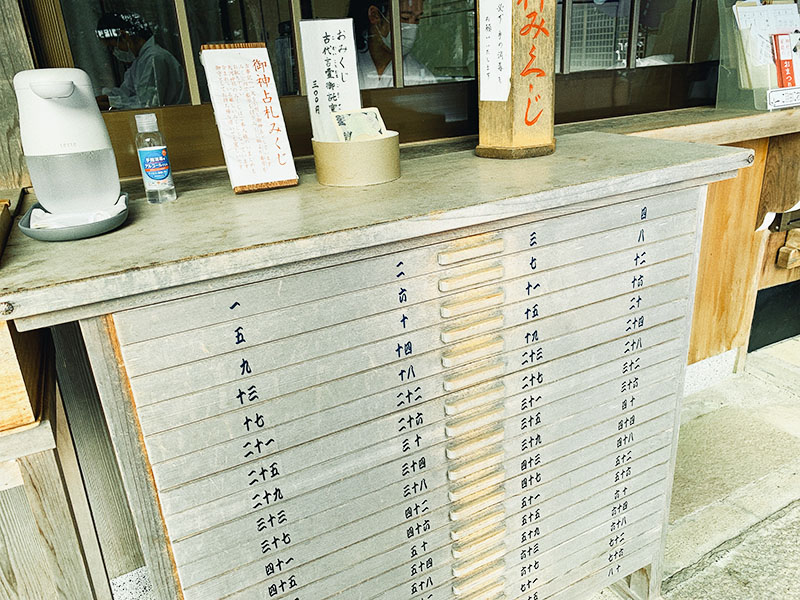 御神占札みくじ
おみくじ
古代言霊御託宣
三〇〇
みくじ
アルコール
一 二 三 四
五 六 七 八
九 十 十一 十二
十三 十四 十五 十六
十七 十八 十九 二十
二十一 二十二 二十三 二十四
二十五 二十六 二十七 二十八
二十九 三十 三十一 三十二
三十三 三十四 三十五 三十六
三十七 三十八 三十九 四十
四十一 四十二 四十三 四十四
四十五 四十六 四十七 四十八
五十 五十一 五十二
五十四 五十五 五十六
五十八 五十九 六十
六十三 六十四
六十七 六十八
七十一 七十二
七十六
八十